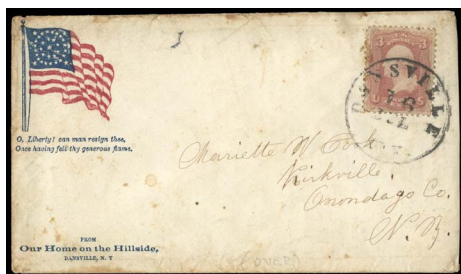 3
DANSVILLE
N.Y.
O, Liberty! can man resign thee,
Once having felt thy generous flame.
Mariette W.
Kirkville,
Onondago Co.
N.Y.
FROM
Our Home on the Hillside,
DANSVILLE, N. Y
OVER